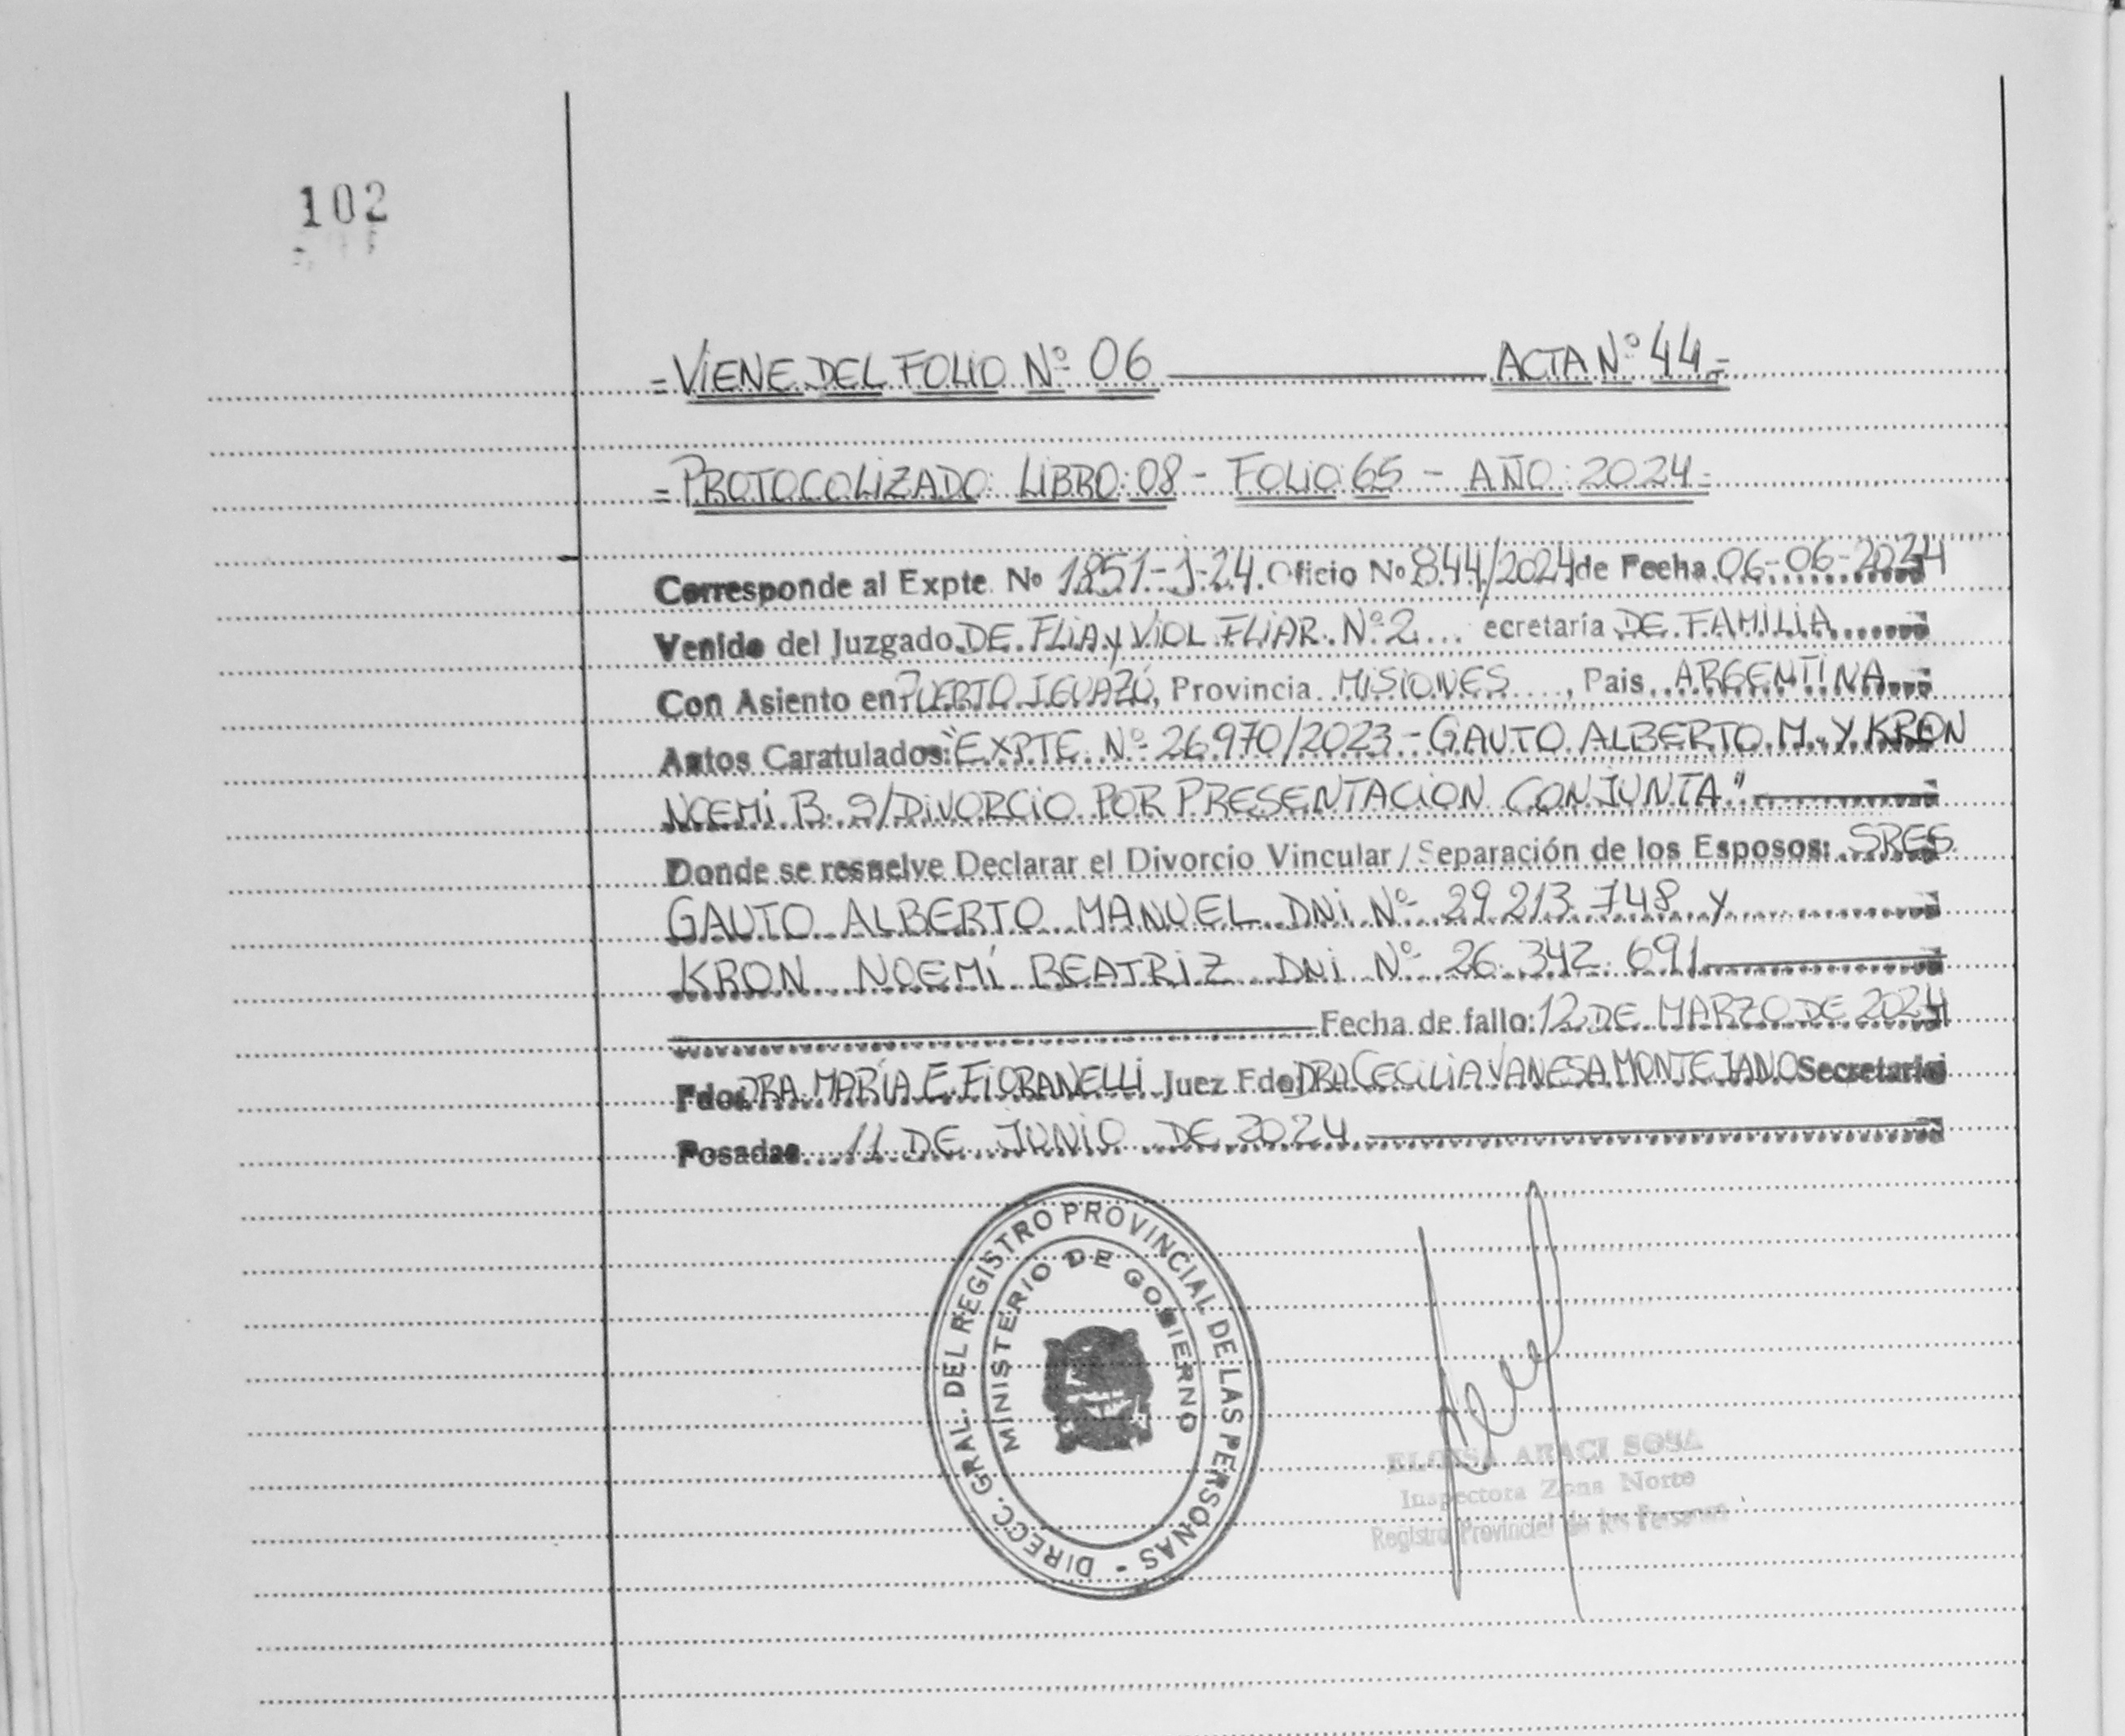 102
= VIENE DEL FOLIO Nº 06 ACTA Nº 44 =
= PROTOCOLIZADO: LIBRO: 08 - FOLIO: 65 - AÑO: 2024 =
Corresponde al Expte. Nº 1851-J-24. Oficio Nº 844/2024 de Fecha 06-06-2024
Venido del Juzgado DE FLIA y VIOL FLIAR. Nº 2 ecretaría DE FAMILIA
Con Asiento en PUERTO IGUAZÚ, Provincia MISIONES, Pais ARGENTINA
Autos Caratulados: "EXPTE. Nº 26.970/2023 - GAUTO ALBERTO M. Y KRON
NOEMÍ B. S/DIVORCIO POR PRESENTACION CONJUNTA"
Donde se resuelve Declarar el Divorcio Vincular / Separación de los Esposos: SRES
GAUTO ALBERTO MANUEL DNI Nº 29.213.748 y
KRON NOEMÍ BEATRIZ DNI Nº 26.342.691
Fecha de fallo: 12 DE MARZO DE 2024
Fdo: DRA. MARÍA E. FIORANELLI Juez Fdo: DRA. CECILIA VANESA MONTEJANO Secretario
Posadas 11 DE JUNIO DE 2024
DIRECC. GRAL. DEL REGISTRO PROVINCIAL DE LAS PERSONAS -
MINISTERIO DE GOBIERNO
ELOISA ARACI SOSA
Inspectora Zona Norte
Registro Provincial de las Personas